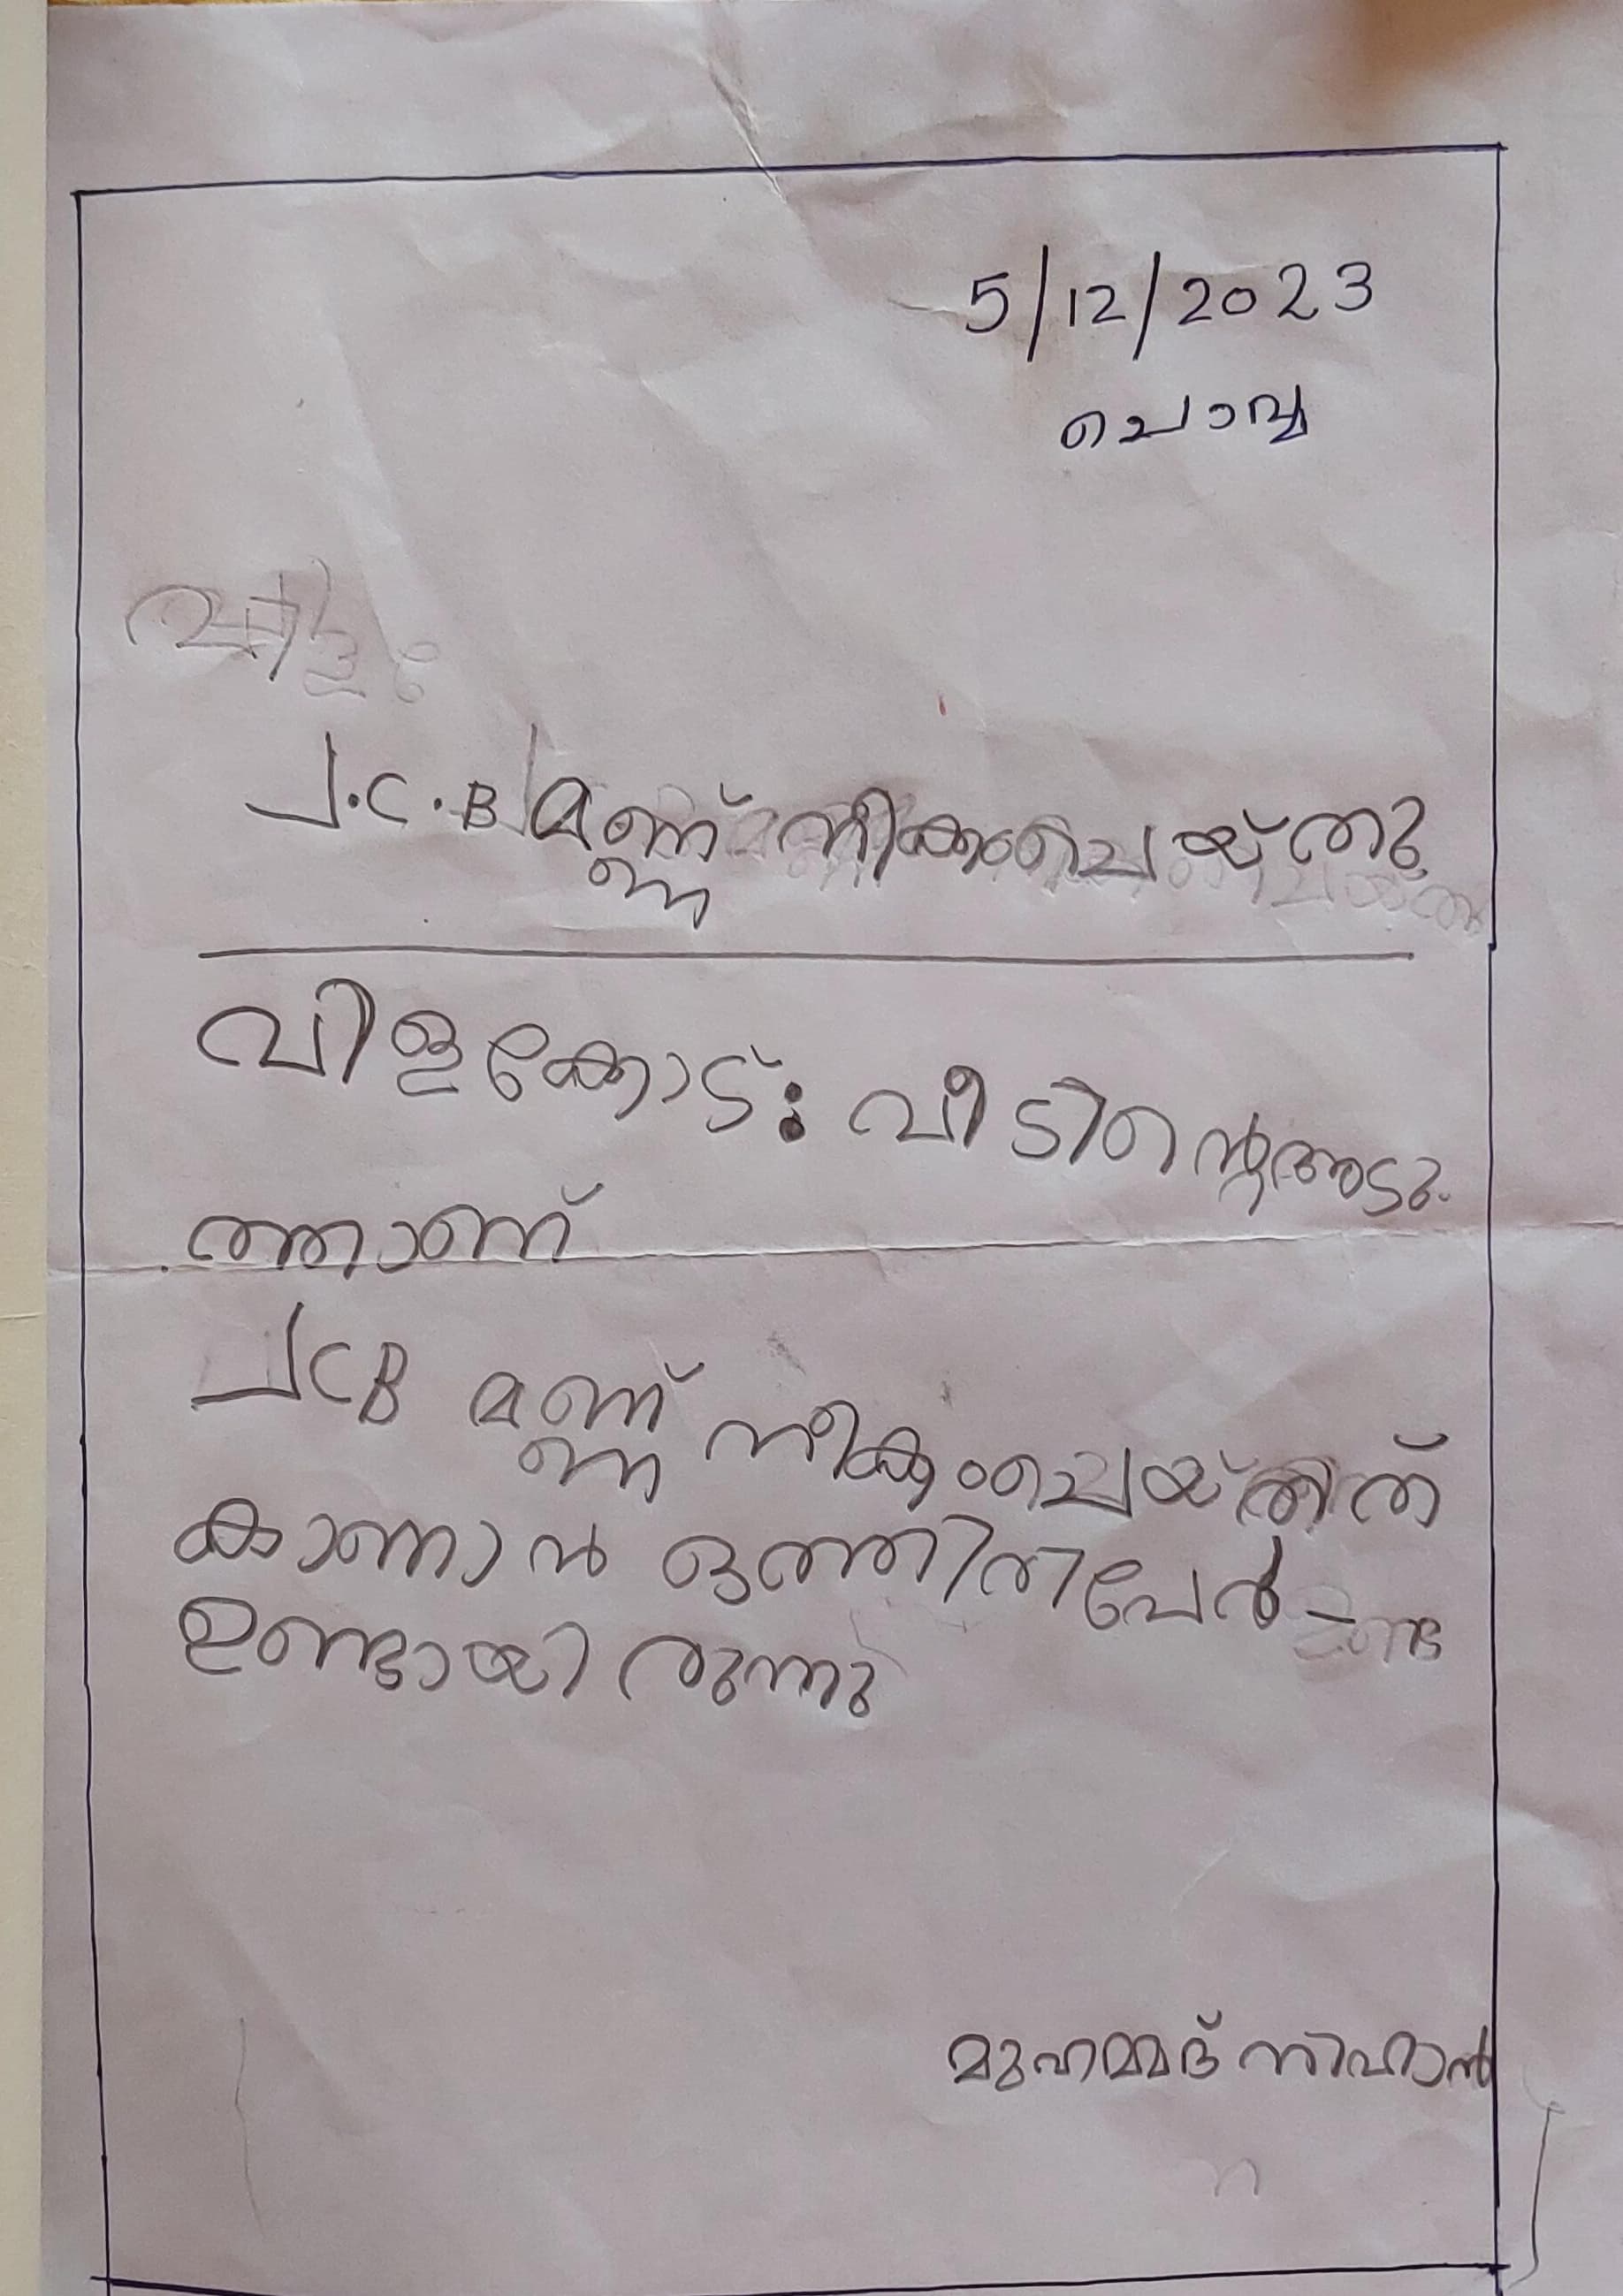 5/12/2023
ചൊവ്വ
J.C.B മണ്ണ് നീക്കംചെയ്തു
വിളക്കോട്: വീടിന്റെഅടു
ത്താണ്
JCB മണ്ണ് നീക്കംചെയ്തത്
കാണാൻ ഒത്തിരിപേർ
ഉണ്ടായിരുന്നു
മുഹമ്മദ് നിഹാൽ